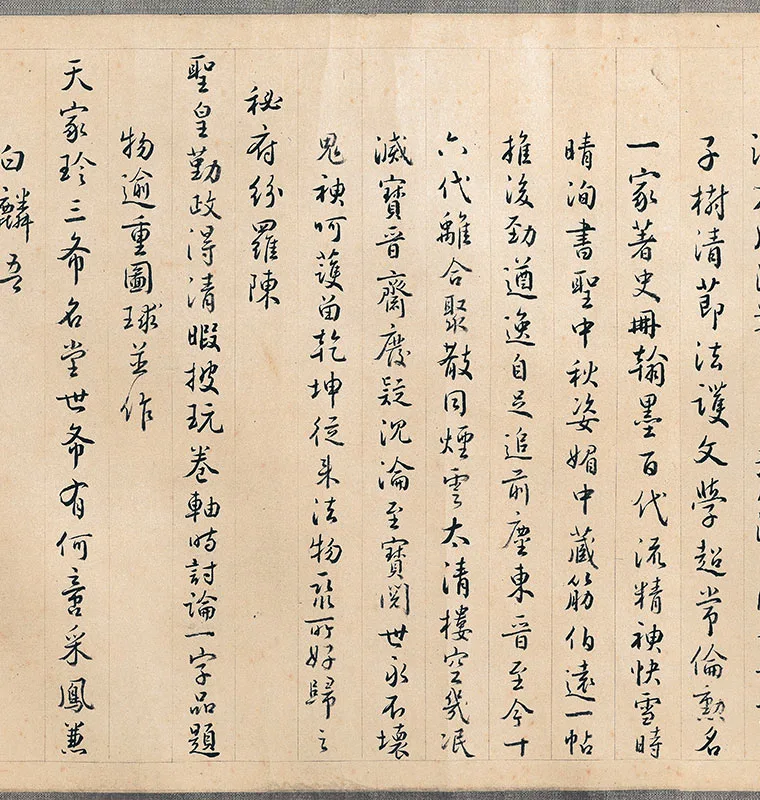 子樹清節法護文學超常倫勳名
一家著史冊翰墨百代流精神快雪時
晴洵書聖中秋姿媚中藏筋伯遠一帖
推後勁遒逸自足追前塵東晉至今十
六代離合聚散同煙雲太清樓空幾泯
滅寶晉齋廢疑沉淪至寶閱世永不壞
鬼神呵護留乾坤從來法物聚所好歸之
秘府紛羅陳
聖皇勤政得清暇披玩卷軸時討論一字品題
物逾重圖球並作
天家珍三希名堂世希有何啻采鳳兼
白麟吾